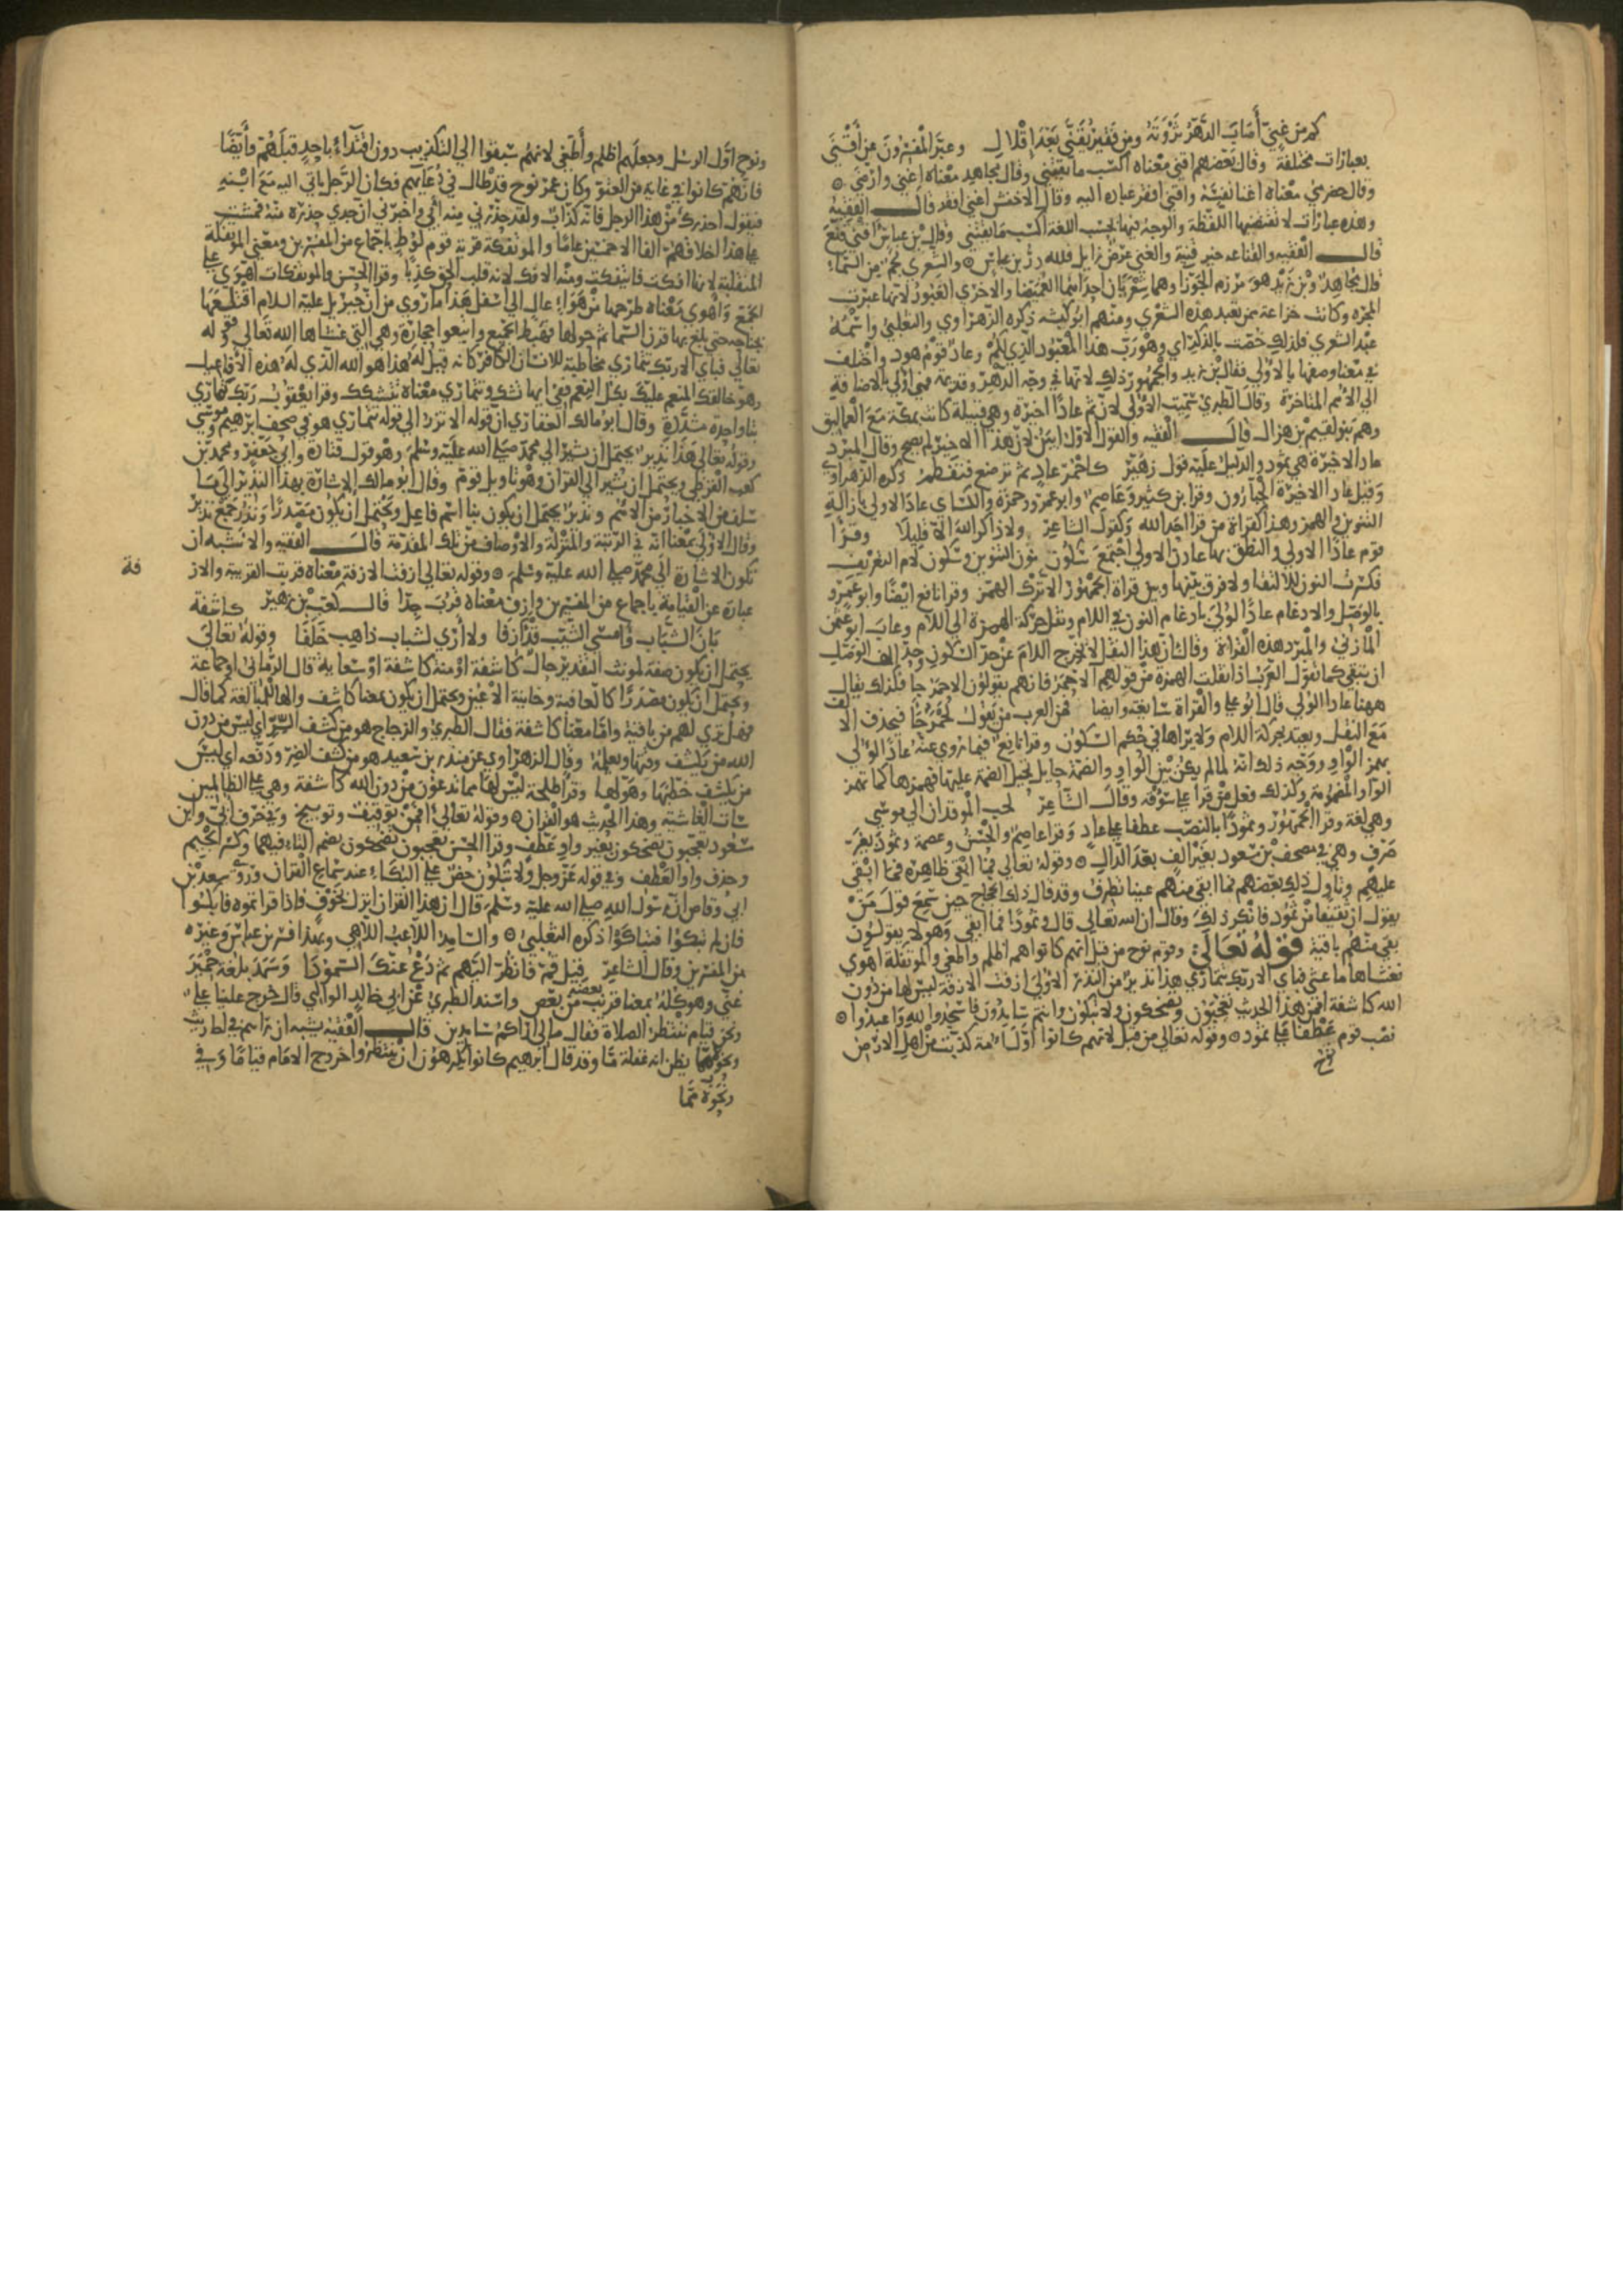 كم من غني أصاب الدهر ثروته ومن فقير يقنى بعد إقلال وعبر المفسرون عن أقنى
بعبارات مختلفة وقال بعضهم اقنى معناه اكسب ما يقتنى وقال مجاهد معناه اغنى وارضى
وقال حضرمي معناه اغنا نفسه واقنى افقر عباده اليه وقال الاخفش اغنى افقر قال الفقيه
وهذه عبارات لا تقتضيها اللفظة والوجه فيها بحسب اللغة اكسب ما يقتنى وقال بن عباس اقنى قنع
قال الفقيه والقناعه خير قنية والغنى عرض زايل فلله در بن عباس والشعرى نجم من السماء
قال مجاهد وبن زيد هو مرزم الجوزا وهما شعريان احداهما الغميصا والاخرى العبور لانها عبرت
المجرة وكانت خزاعة ممن تعبد هذه الشعرى ومنهم ابو كبشه ذكره الزهراوي والثعلبي واسمه
عبد الشعرى فلذلك خصت بالذكر اي وهو رب هذا المعبود الذي لكم وعاد قوم هود واختلف
في معنا وصفها بالاولى فقال بن زيد والجمهور ذلك لانها في وجه الدهر وقديمه فهي اولى بالاضافة
الى الامم المتاخرة وقال الطبري سميت الاولى لان ثم عادا اخيرة وهي قبيلة كانت بمكة مع العماليق
وهم بنو لقيم بن هزال قال الفقيه والقول الاول ابين لان هذا الاخير لم يصح وقال المبرد
عاد الاخيرة هي ثمود والدليل عليه قول زهير كاحمر عاد ثم ترضع فتفطم ذكره الزهراوي
وقيل عاد الاخيرة الجبارون وقرا بن كثير وعاصم وابو عمرو وحمزة والكساي عادا الاولى بازالة
التنوين والهمز وهذا كقراة من قرا احد الله وكقول الشاعر ولا ذاكر الله الا قليلا وقرا
قوم عادا الاولى والنطق بها عادن الاولى اجتمع سكون نون التنوين وسكون لام التعريف
فكسرت النون للالتقا ولا فرق بينها وبين قراة الجمهور الا ترك الهمز وقرا نافع ايضا وابو عمرو
بالوصل والادغام عادا لولى بادغام النون في اللام ونقل حركة الهمزة الى اللام وعاب ابو عثمن
المازني والمبرد هذه القراة وقالا ان هذا النقل لا يخرج اللام عن حد السكون وحد الف الوصل
ان تبقى كما تقول العرب اذا نقلت الهمزة من قولهم الاحمر فانهم يقولون الاحمر جا فكذلك يقال
ههنا عادا الولى قال ابو علي والقراة سايغة وايضا فمن العرب من يقول لحمر جا فيحذف الالف
مع النقل ويعتد بحركة اللام ولا يراها في حكم السكون وقرا نافع فيما روي عنه عادا لؤلى
بهمز الواو ووجه ذلك انه لما لم يكن بين الواو والضمة حايل تخيل الضمة عليها فهمزها كما تهمز
الواو المضمومة وكذلك فعل من قرا على سؤقه وقال الشاعر لحب المؤقدان الي موسى
وهي لغة وقرا الجمهور وثمودا بالنصب عطفا على عاد وقرا عاصم والحسن وعصمة وثمود بغير
صرف وهي في مصحف بن مسعود بغير الف بعد الدال وقوله تعالى فما ابقى ظاهره فما ابقى
عليهم وتاول ذلك بعضهم فما ابقى منهم عينا تطرف وقد قال ذلك الحجاج حين سمع قول من
يقول ان ثقيفا من ثمود فانكر ذلك وقال ان الله تعالى قال وثمودا فما ابقى وهولا يقولون
بقي منهم باقية قوله تعالى وقوم نوح من قبل انهم كانوا هم اظلم واطغى والموتفكة اهوى
فغشاها ما غشى فباي الا ربك تتمارى هذا نذير من النذر الاولى ازفت الازفة ليس لها من دون
الله كاشفة افمن هذا الحديث تعجبون وتضحكون ولا تبكون وانتم سامدون فاسجدوا لله واعبدوا
نصب قوم عطفا على ثمود وقوله تعالى من قبل لانهم كانوا اول امة كذبت من اهل الارض
ونوح اول الرسل وجعلهم اظلم وأطغى لانهم سبقوا الى التكذيب دون اقتداء باحد قبلهم وأيضا
فانهم كانوا في غاية من العتو وكان عمر نوح قد طال في دعايهم فكان الرجل ياتي اليه مع ابنه
فيقول احذرك من هذا الرجل فانه كذاب ولقد حذرني منه ابي واخبرني ان جدي حذره منه فمشت
على هذا اخلافهم الفا الا خمسين عاما والموتفكة قرية قوم لوط باجماع من المفسرين ومعنى الموتفكة
المنقلبة لانها افكت فايتفكت ومنه الافك لانه قلب الحق كذبا وقرا الحسن والموتفكات اهوى على
الجمع وأهوى معناه طرحها من هواء عال الى اسفل هذا ما روي من ان جبريل عليه السلام اقتلعها
بجناحه حتى بلغ بها قرب السما ثم حولها فهبط الجميع واتبعوا حجارة وهي التي غشاها الله تعالى وقوله
تعالى فباي الا ربك تتمارى مخاطبة للانسان الكافر كانه قيل له هذا هو الله الذي له هذه الافاعيل
وهو خالقك المنعم عليك بكل النعم ففي ايها تشك وتتمارى معناه تتشكك وقرا يعقوب ربك تمارى
بتا واحدة مشددة وقال ابو مالك الغفاري ان قوله الا تزر الى قوله تتمارى هو في صحف ابرهيم وموسى
وقوله تعالى هذا نذير يحتمل ان يشير الى محمد صلى الله عليه وسلم وهو قول قتادة وأبي جعفر ومحمد بن
كعب القرظي ويحتمل ان يشير الى القرآن وهو تاويل قوم وقال ابو مالك الاشارة بهذا النذير الى ما
سلف من الاخبار من الامم ونذير يحتمل ان يكون بنا اسم فاعل ويحتمل ان يكون مصدرا ونذر جمع نذير
وقال الاولى بمعنا انه في الرتبة والمنزلة والاوصاف من تلك المقدمة قال الفقيه والاشبه ان
تكون الاشارة الى محمد صلى الله عليه وسلم وقوله تعالى ازفت الازفة معناه قربت القريبة والازفة
عبارة عن القيامة باجماع من المفسرين وازف معناه قرب جدا قال كعب بن زهير كاشفة
بان الشباب وامسى الشيب قد ازفا ولا أرى لشباب ذاهب خلفا وقوله تعالى
يحتمل ان يكون صفة لمونث التقدير حال كاشفة او منة كاشفة او سعاية قال الرماني او جماعة
ويحتمل ان يكون مصدرا كالعافية وخاينة الاعين ويحتمل ان يكون بمعنا كاشف والها للمبالغة كما قال
فهل ترى لهم من باقية واما معنا كاشفة فقال الطبري والزجاج هو من كشف السر اي ليس من دون
الله من يكشف وقتها ويعلمه وقال الزهراوي عن منذر بن سعيد هو من كشف الضر ودفعه اي ليس
من يكشف خطبها وهولها وقرا طلحة ليس لها مما تدعون من دون الله كاشفة وهي على الظالمين
سات الغاشية وهذا الحديث هو القران وقوله تعالى افمن توقيف وتوبيخ وفي حرف ابي وابن
مسعود تعجبون تضحكون بغير واو عطف وقرا الحسن تعجبون تضحكون بضم التاء فيهما وكسر الجيم
وحذف واو العطف وفي قوله عز وجل ولا تبكون حض على البكاء عند سماع القران وروى سعد بن
ابي وقاص ان رسول الله صلى الله عليه وسلم قال ان هذا القران انزل بخوف فاذا قراتموه فابكوا
فان لم تبكوا فتباكوا ذكره الثعلبي والسامد اللاعب اللاهي وبهذا فسر بن عباس وغيره
من المفسرين وقال الشاعر قيل قم فانظر اليهم ثم دع عنك السمودا وسمد بلغة حمير
غنى وهو كله بمعنا قريب بعضه من بعض واسند الطبري عن ابي خالد الوالبي قال خرج علينا علي
ونحن قيام ننتظر الصلاة فقال مالي اراكم سامدين قال الفقيه يشبه ان راهم في احاديث
ونحوها مما يظن انه غفلة ما وقد قال ابرهيم كانوا يكرهون ان ينتظروا خروج الامام قياما وفي
ونحوه مما
فة
نوح